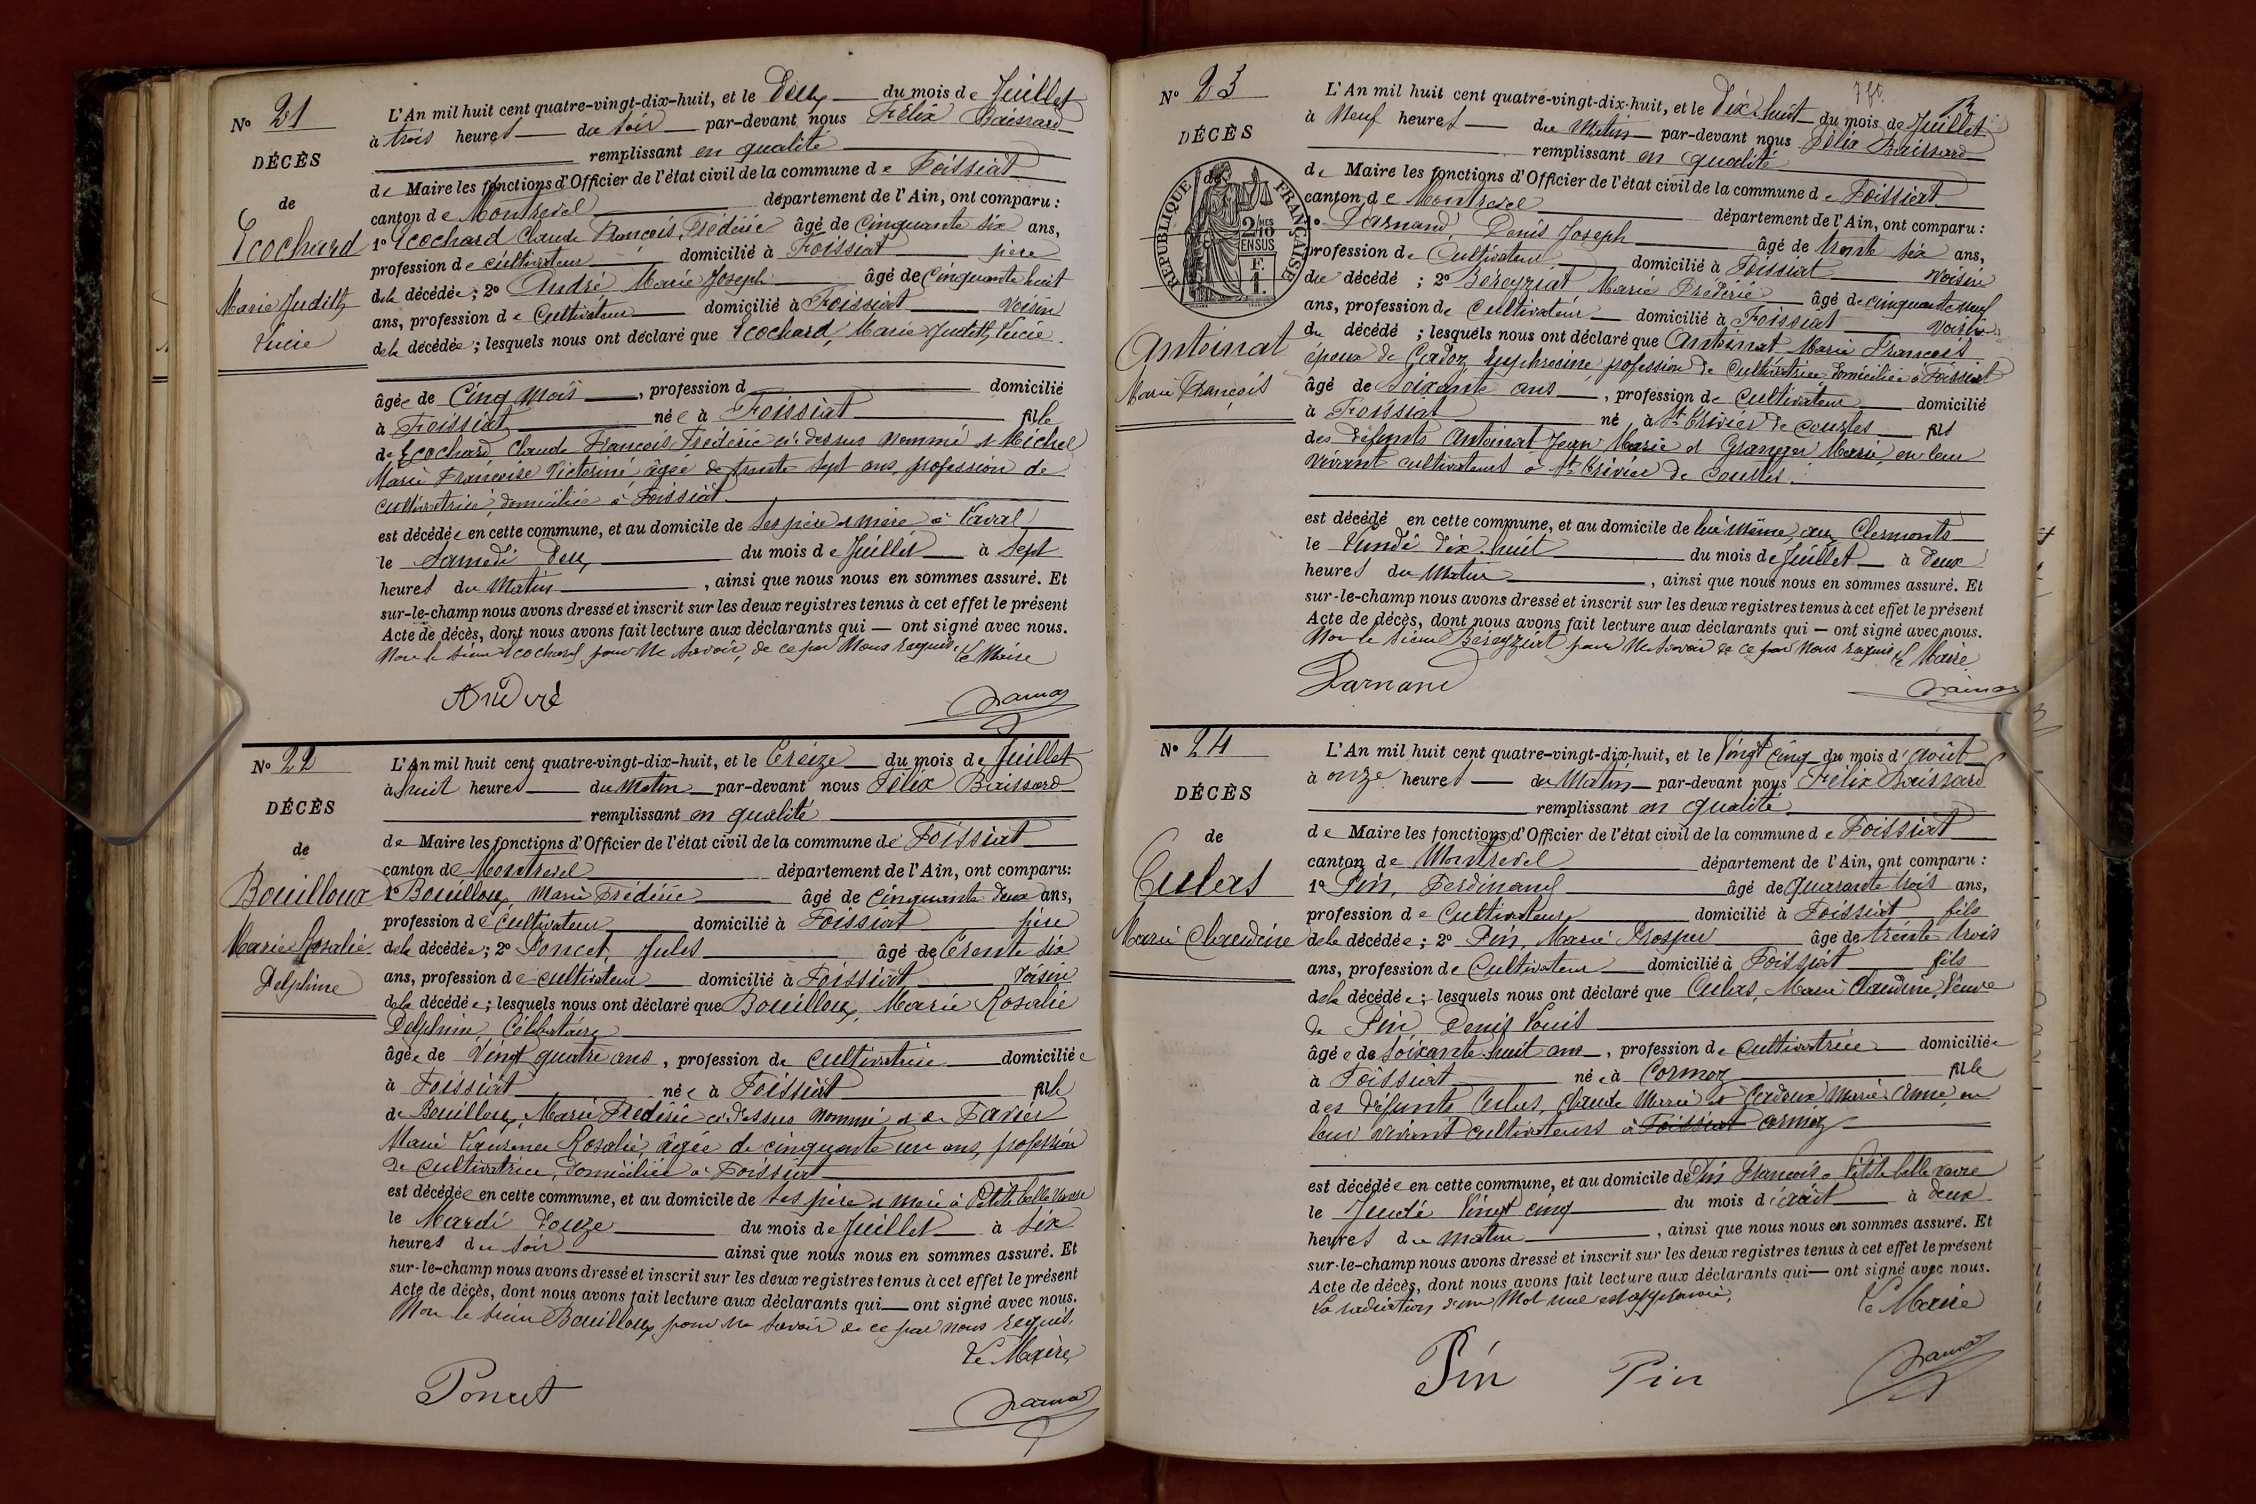 N° 21
DÉCÈS
de
Ecochard
Marie Judith
Lucie
L'An mil huit cent quatre-vingt-dix-huit, et le Deux du mois de Juillet
à trois heures du soir par-devant nous Félix Baissard
remplissant en qualité
de Maire les fonctions d'Officier de l'état civil de la commune de Foissiat
canton de Montrevel département de l'Ain, ont comparu :
1° Ecochard Claude François Frédéric âgé de Cinquante six ans,
profession de cultivateur domicilié à Foissiat père
de la décédée ; 2° André Marie Joseph âgé de Cinquante huit
ans, profession de Cultivateur domicilié à Foissiat voisin
de la décédée ; lesquels nous ont déclaré que Ecochard, Marie Judith, Lucie
âgée de Cinq mois, profession d domicilié
à Foissiat née à Foissiat fille
de Ecochard Claude François Frédéric ci-dessus nommé et Michel
Marie Françoise Victorine âgée de trente sept ans, profession de
cultivatrice, domiciliée à Foissiat
est décédée en cette commune, et au domicile de ses père et mère à Laval
le Samedi Deux du mois de Juillet à Sept
heures du Matin, ainsi que nous nous en sommes assuré. Et
sur-le-champ nous avons dressé et inscrit sur les deux registres tenus à cet effet le présent
Acte de décès, dont nous avons fait lecture aux déclarants qui — ont signé avec nous.
Non le sieur Ecochard pour ne savoir, de ce par Nous requis. Le Maire
André
N° 22
DÉCÈS
de
Bouilloux
Marie Rosalie
Delphine
L'An mil huit cent quatre-vingt-dix-huit, et le Treize du mois de Juillet
à huit heures du Matin par-devant nous Félix Baissard
remplissant en qualité
de Maire les fonctions d'Officier de l'état civil de la commune de Foissiat
canton de Montrevel département de l'Ain, ont comparu :
1° Bouilloux, Marie Frédéric âgé de Cinquante deux ans,
profession de Cultivateur domicilié à Foissiat père
de la décédée ; 2° Poncet, Jules âgé de Trente six
ans, profession de cultivateur domicilié à Foissiat voisin
de la décédée ; lesquels nous ont déclaré que Bouilloux, Marie Rosalie
Delphine, Célibataire
âgée de Vingt quatre ans, profession de cultivatrice domiciliée
à Foissiat née à Foissiat fille
de Bouilloux, Marie Frédéric ci-dessus nommé et de Favier
Marie Laurence Rosalie, âgée de cinquante un ans, profession
de cultivatrice, domiciliée à Foissiat
est décédée en cette commune, et au domicile de ses père et mère à Petite belle Vavre
le Mardi Douze du mois de Juillet à six
heures du soir ainsi que nous nous en sommes assuré. Et
sur-le-champ nous avons dressé et inscrit sur les deux registres tenus à cet effet le présent
Acte de décès, dont nous avons fait lecture aux déclarants qui — ont signé avec nous.
Non le sieur Bouilloux pour ne savoir de ce par nous requis.
Le Maire
Poncet
N° 23
DÉCÈS
de
RÉPUBLIQUE FRANÇAISE
2/10 MES
EN SUS
Antoinat
Marie François
L'An mil huit cent quatre-vingt-dix-huit, et le Dix huit du mois de Juillet
à Neuf heures du Matin par-devant nous Félix Baissard
remplissant en qualité
de Maire les fonctions d'Officier de l'état civil de la commune de Foissiat
canton de Montrevel département de l'Ain, ont comparu :
1° Darnand, Denis Joseph âgé de trente six ans,
profession de Cultivateur domicilié à Foissiat voisin
du décédé ; 2° Béreyziat Marie Frédéric âgé de cinquante neuf
ans, profession de Cultivateur domicilié à Foissiat voisin
du décédé ; lesquels nous ont déclaré que Antoinat Marie François
époux de Cadoz, Euphrosine profession de Cultivatrice domiciliée à Foissiat
âgé de Soixante ans, profession de Cultivateur domicilié
à Foissiat né à St Trivier de Courtes fils
des défunts Antoinat Jean Marie et Granger Marie, en leur
vivant cultivateurs à St Trivier de Courtes.
est décédé en cette commune, et au domicile de lui même, aux Clermonts
le Lundi dix-huit du mois de Juillet à Deux
heures du Matin, ainsi que nous nous en sommes assuré. Et
sur-le-champ nous avons dressé et inscrit sur les deux registres tenus à cet effet le présent
Acte de décès, dont nous avons fait lecture aux déclarants qui — ont signé avec nous.
Non le sieur Béreyziat pour Ne savoir de ce par Nous requis Le Maire
Darnand
N° 24
DÉCÈS
de
Culas
Marie Claudine
L'An mil huit cent quatre-vingt-dix-huit, et le Vingt cinq du mois d'août
à onze heures du Matin par-devant nous Félix Baissard
remplissant en qualité
de Maire les fonctions d'Officier de l'état civil de la commune de Foissiat
canton de Montrevel département de l'Ain, ont comparu :
1° Pin, Ferdinand âgé de Quarante trois ans,
profession de Cultivateur domicilié à Foissiat fils
de la décédée ; 2° Pin, Marie Prosper âgé de trente trois
ans, profession de Cultivateur domicilié à Foissiat fils
de la décédée ; lesquels nous ont déclaré que Culas, Marie Claudine, Veuve
de Pin Denis Louis
âgée de Soixante-huit ans, profession de cultivatrice domiciliée
à Foissiat née à Cormoz fille
des défunts Culas, Claude Marie et Cadoux Marie Anne, en
leur vivant cultivateurs à Foissiat cormoz
est décédée en cette commune, et au domicile de Pin François à Petite belle vavre
le Jeudi Vingt cinq du mois d'août à deux
heures du matin, ainsi que nous nous en sommes assuré. Et
sur-le-champ nous avons dressé et inscrit sur les deux registres tenus à cet effet le présent
Acte de décès, dont nous avons fait lecture aux déclarants qui — ont signé avec nous.
La radiation d'un Mot nul est approuvée.
Le Maire
Pin Pin